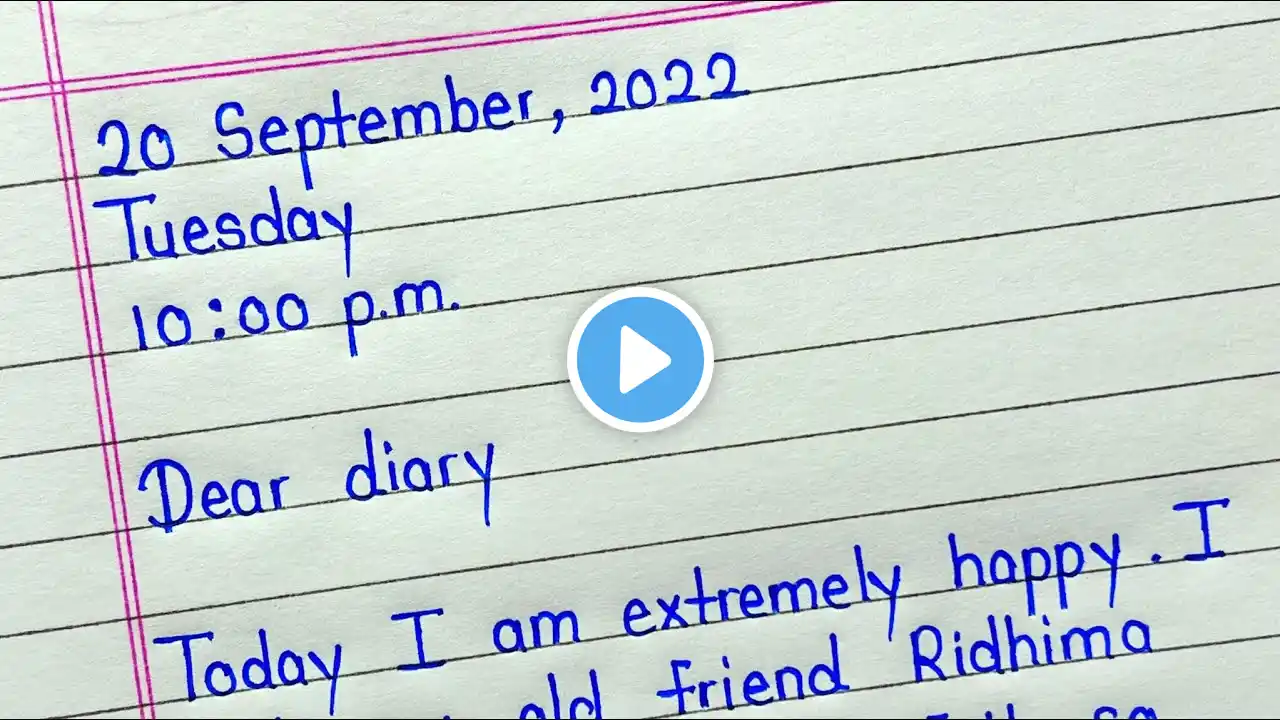 20 September, 2022
Tuesday
10:00 p.m.
Dear diary
Today I am extremely happy. I
old friend Ridhima